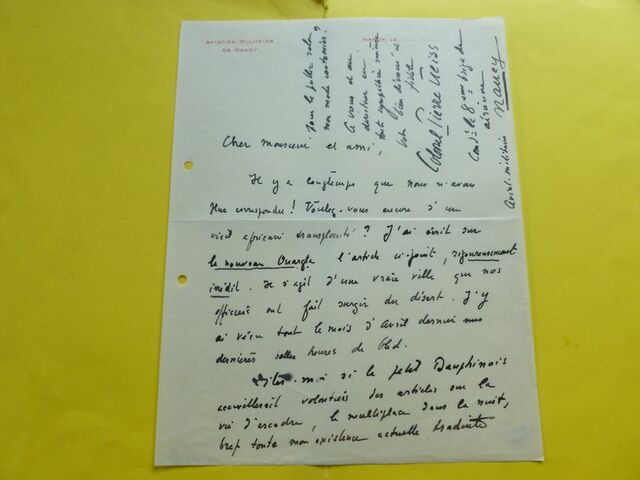 AVIATION MILITAIRE
DE NANCY
NANCY, LE
Cher monsieur et ami,
Il y a longtemps que nous n'avons
plus correspondu ! Voulez-vous encore d'un
vieil africain transplanté ? J'ai écrit sur
le nouveau Ouargla l'article ci-joint, rigoureusement
inédit. Il s'agit d'une vraie ville que nos
officiers ont fait surgir du désert. J'y
ai vécu tout le mois d'Avril dernier mes
dernières belles heures de bled.
Dites-moi si le petit Dauphinois
accueillerait volontiers des articles sur la
vie d'escadre, le multiplace dans la nuit,
bref toute mon existence actuelle traduite
sous le
mon mode coutumier ?
À vous et au
directeur en
toute sympathie
bien dévoué et
fidèle
Colonel Pierre Weiss
Comdt la 8eme brigade
aérienne
Nancy
Aviat. militaire